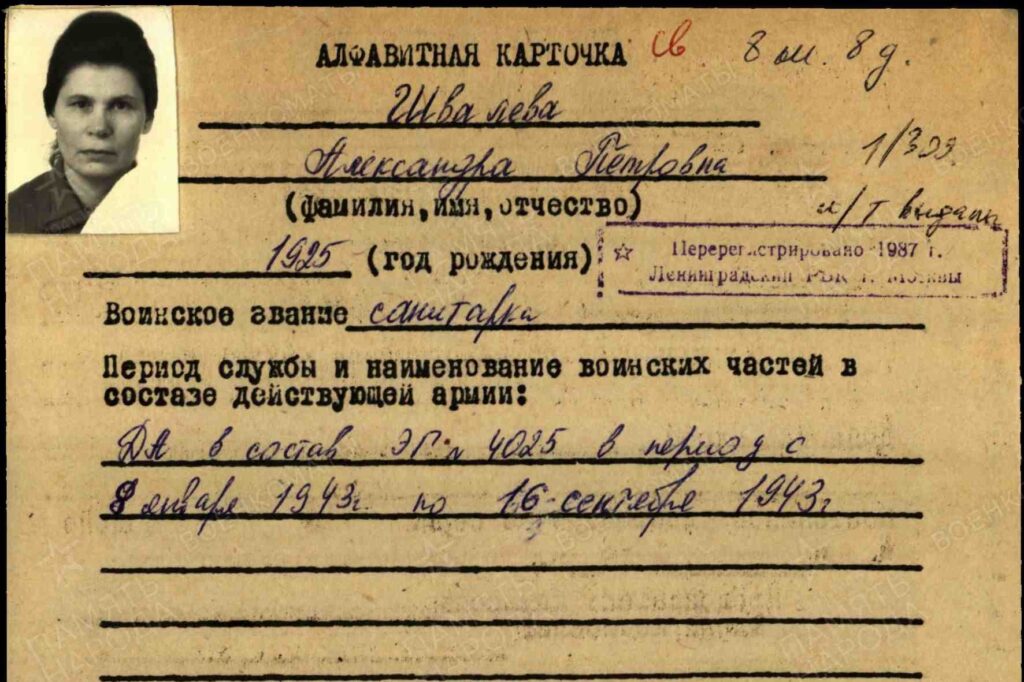 АЛФАВИТНАЯ КАРТОЧКА св. 8 оп. 8 д.
Швалева
Александра Петровна
1/399
(фамилия, имя, отчество)
и/т выдано
1925 (год рождения)
☆ Перерегистрировано 1987 г.
Ленинградский РВК г. Москвы
Воинское звание санитарка
Период службы и наименование воинских частей в
составе действующей армии:
ДА в состав ЭГ 4025 в период с
8 января 1943г. по 16 сентября 1943г
ПАМЯТЬ НАРОДА